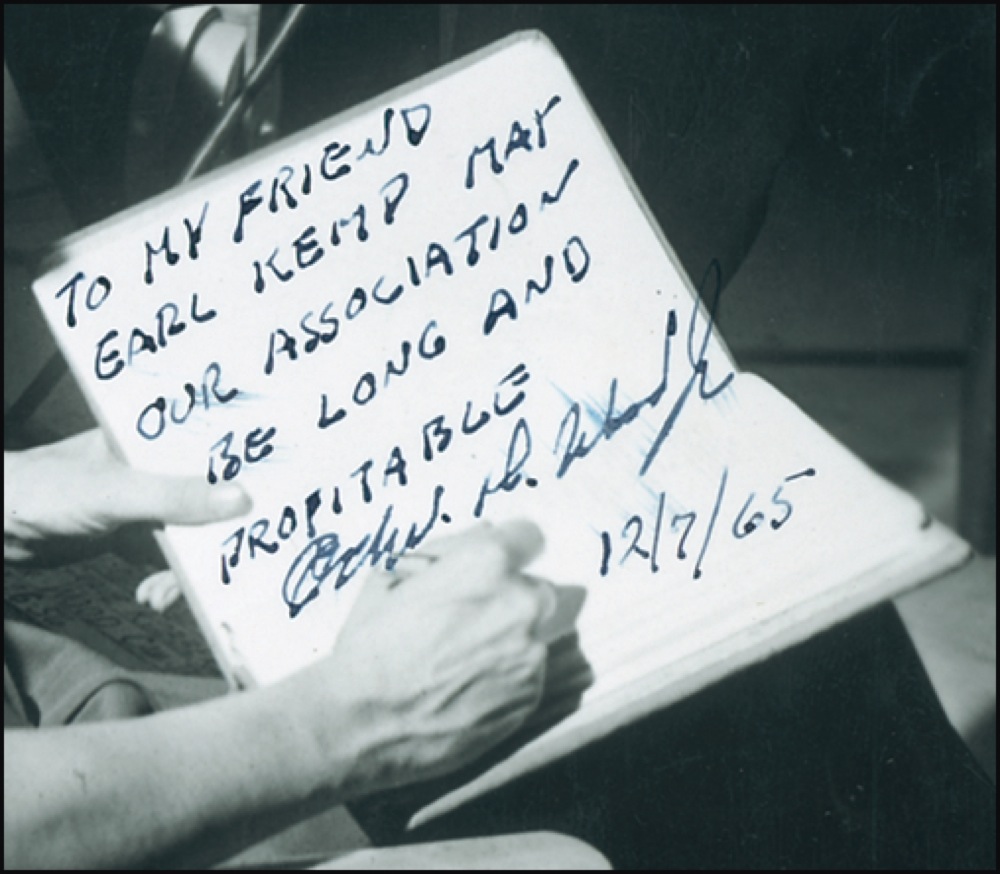 TO MY FRIEND
EARL KEMP MAY
OUR ASSOCIATION
BE LONG AND
PROFITABLE
Edw. D. Wood Jr
12/7/65